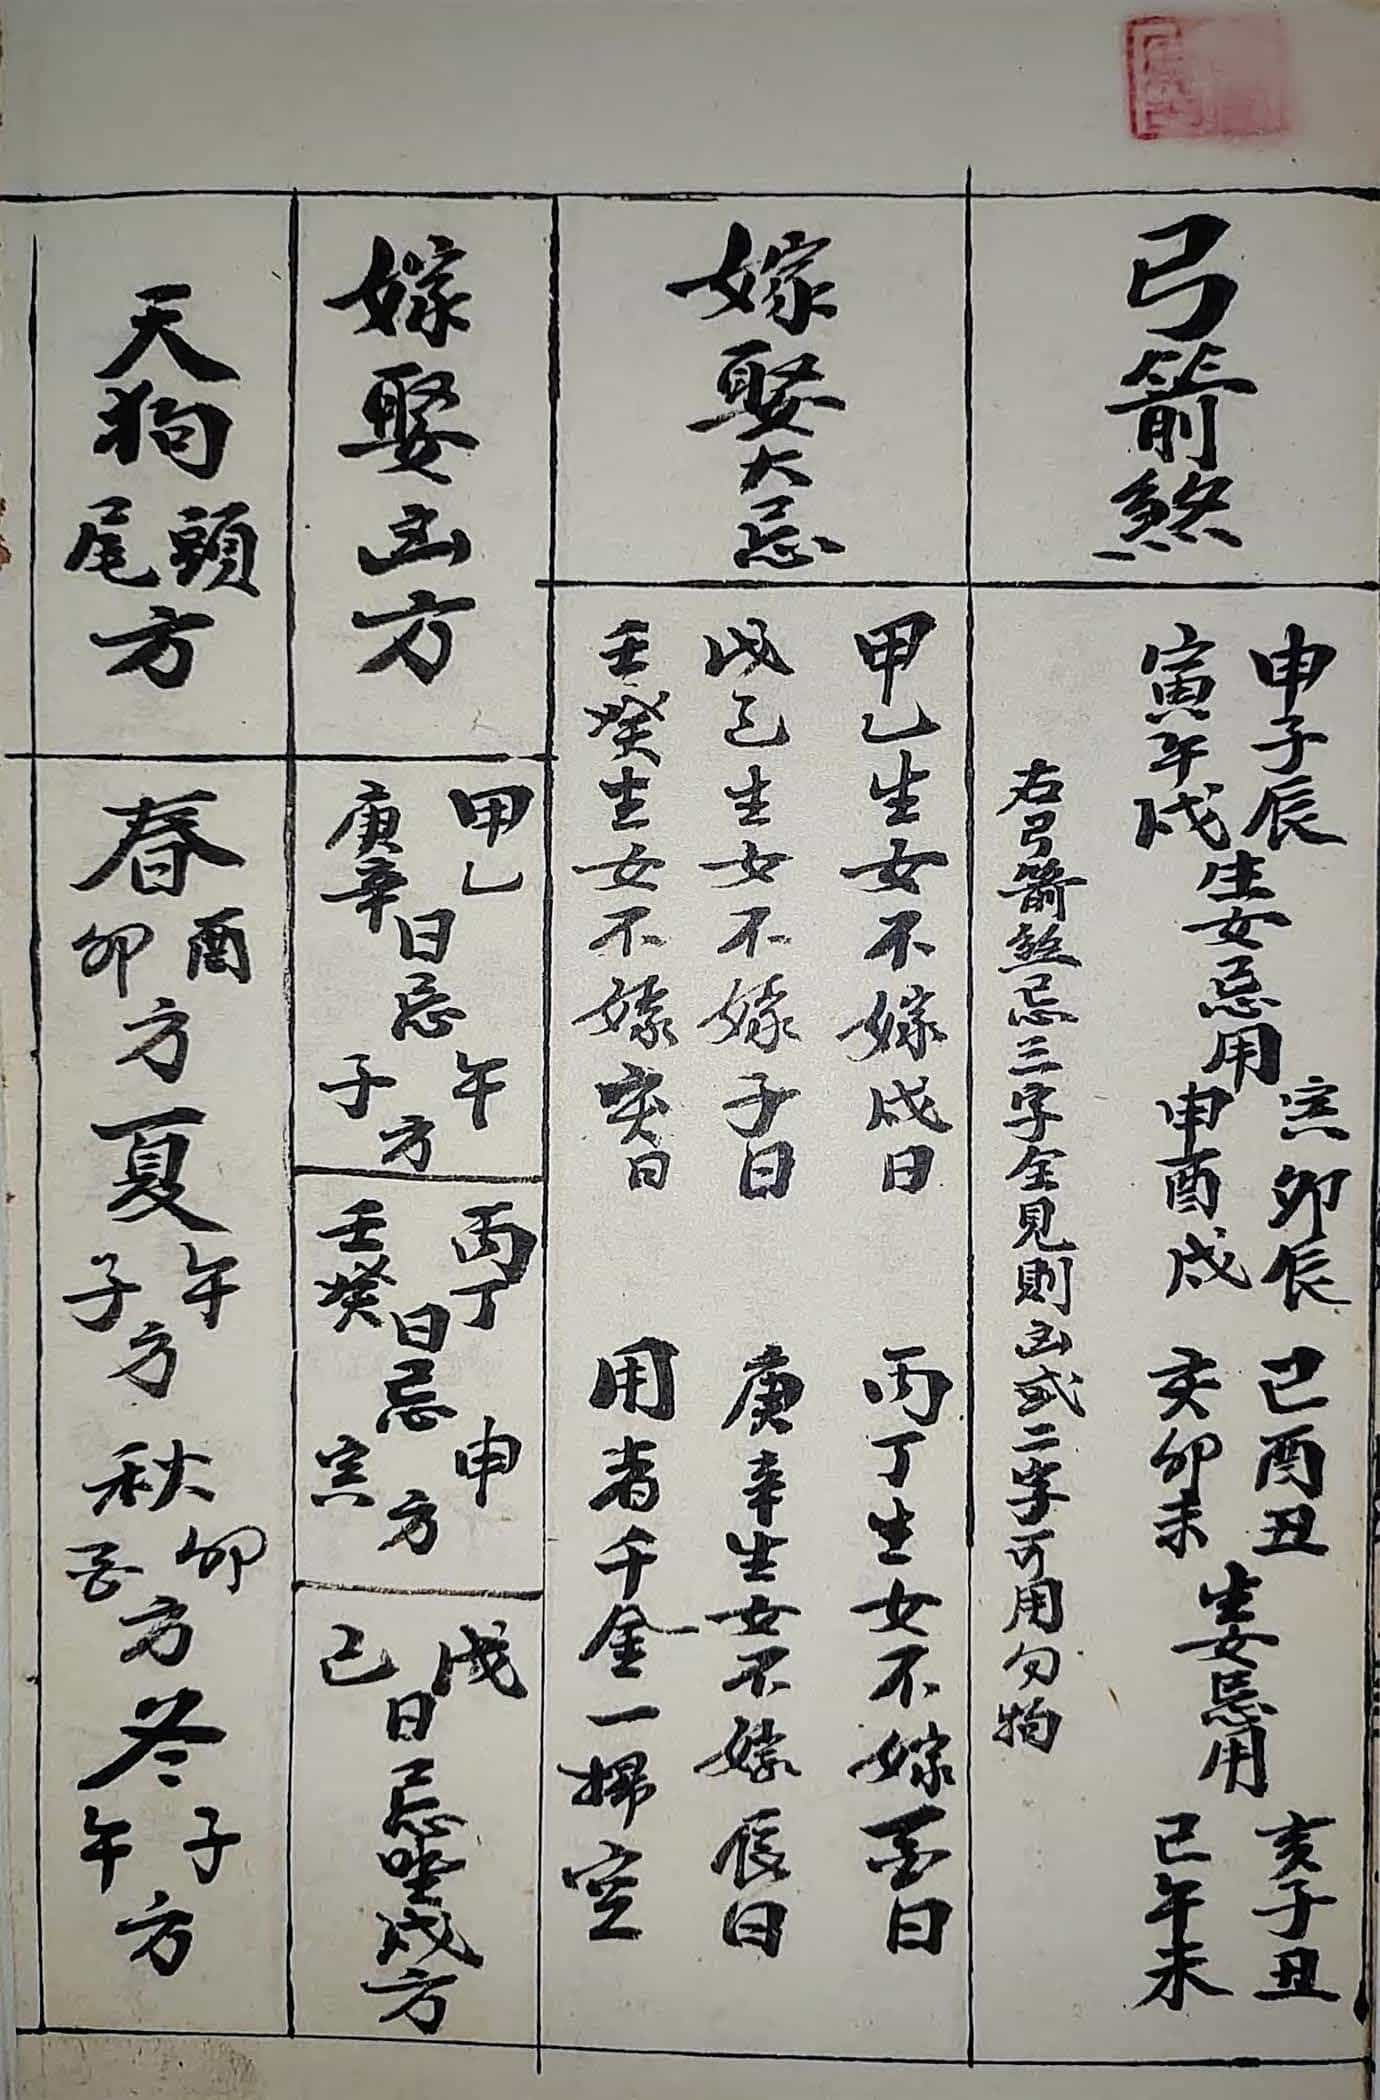 弓箭煞
申子辰
寅午戌
生女忌用
寅卯辰
申酉戌
巳酉丑
亥卯未
生女忌用
亥子丑
巳午未
右弓箭煞忌三字全見則凶或二字可用勿拘
嫁娶大忌
甲乙生女不嫁戌日 丙丁生女不嫁酉日
戊己生女不嫁子日 庚辛生女不嫁辰日
壬癸生女不嫁亥日 用者千金一掃空
嫁娶凶方
甲乙
庚辛
日忌
午
子
方
丙丁
壬癸
日忌
申
寅
方
戊
己
日忌坐戌方
天狗
頭
尾
方
春
酉
卯
方
夏
午
子
方
秋
卯
酉
方
冬
子
午
方